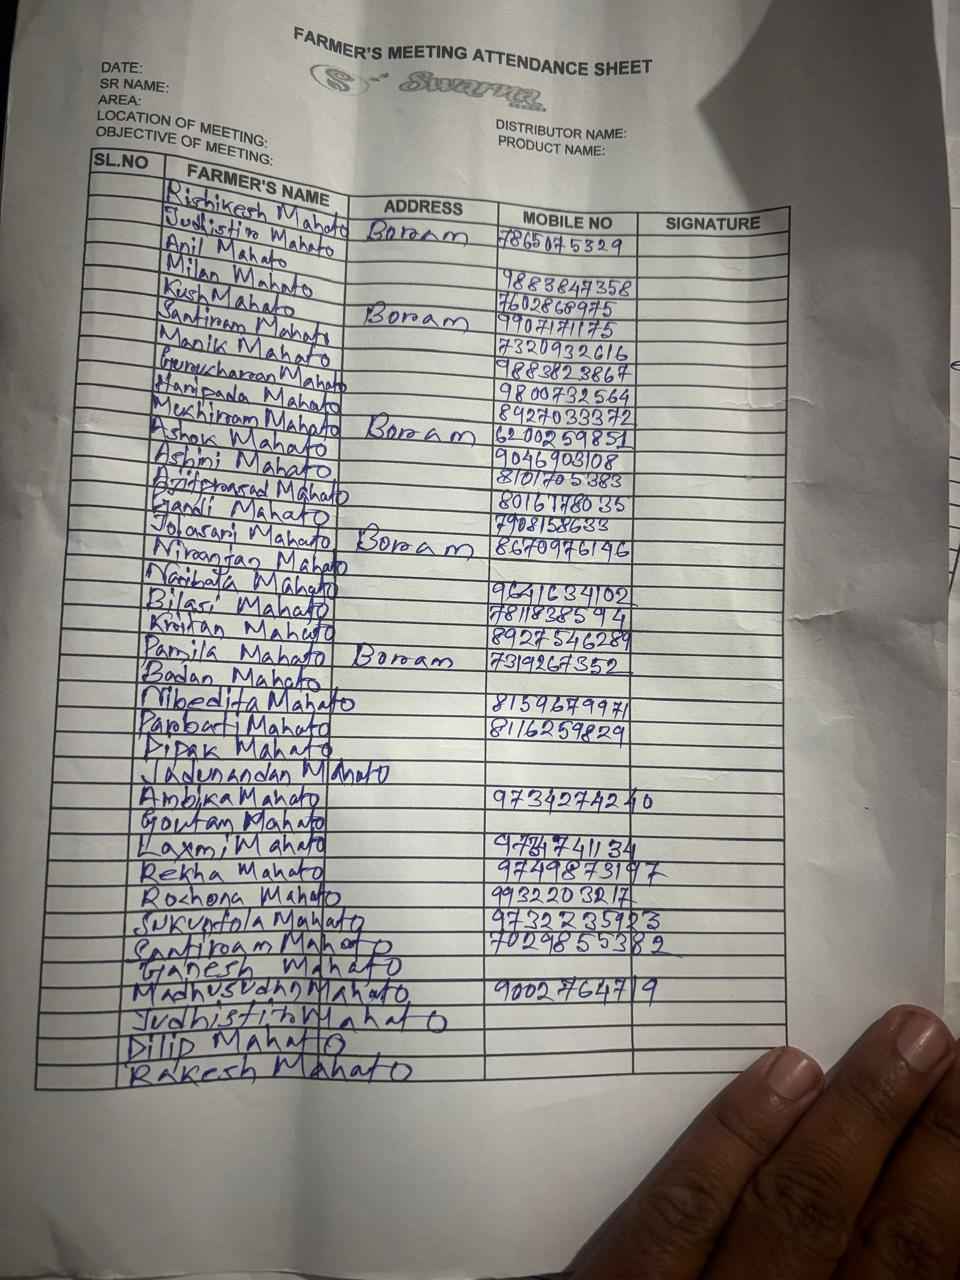 FARMER'S MEETING ATTENDANCE SHEET
S Swarna
DATE:
SR NAME:
AREA:
LOCATION OF MEETING:
OBJECTIVE OF MEETING:
DISTRIBUTOR NAME:
PRODUCT NAME:
SL.NO FARMER'S NAME ADDRESS MOBILE NO SIGNATURE
Rishikesh Mahato Boram 7865075329
Judhistir Mahato
Anil Mahato 9883847358
Milan Mahato 7602868975
Kush Mahato Boram 9907171175
Santiram Mahato 7320932616
Manik Mahato 9883823867
Gurucharan Mahato 9800732564
Haripada Mahato 8927033372
Mukhiram Mahato Boram 6200259851
Ashok Mahato 9046903108
Ashini Mahato 8101705383
Ajitprasad Mahato 8016178035
Gandi Mahato 7908158633
Jolasari Mahato Boram 8670976146
Niranjan Mahato
Naribala Mahato 9641634102
Bilasi Mahato 7811838594
Kritan Mahato 8927546289
Pamila Mahato Boram 7319267352
Badan Mahato
Nibedita Mahato 8159679971
Parbati Mahato 8116259829
Dipak Mahato
Jadunandan Mahato
Ambika Mahato 9734274240
Goutam Mahato
Laxmi Mahato
Rekha Mahato 9749873197
Rochona Mahato 9932203217
Sukuntola Mahato 9732235923
Santiram Mahato 7029855382
Ganesh Mahato
Madhusudhn Mahato 9002764719
Judhistir Mahato
Dilip Mahato
Rakesh Mahato